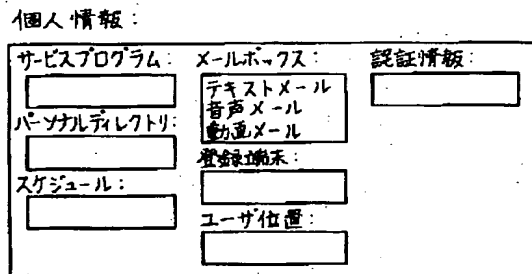 個人情報:
サービスプログラム:
パーソナルディレクトリ:
スケジュール:
メールボックス:
テキストメール
音声メール
動画メール
登録端末:
ユーザ位置:
認証情報: